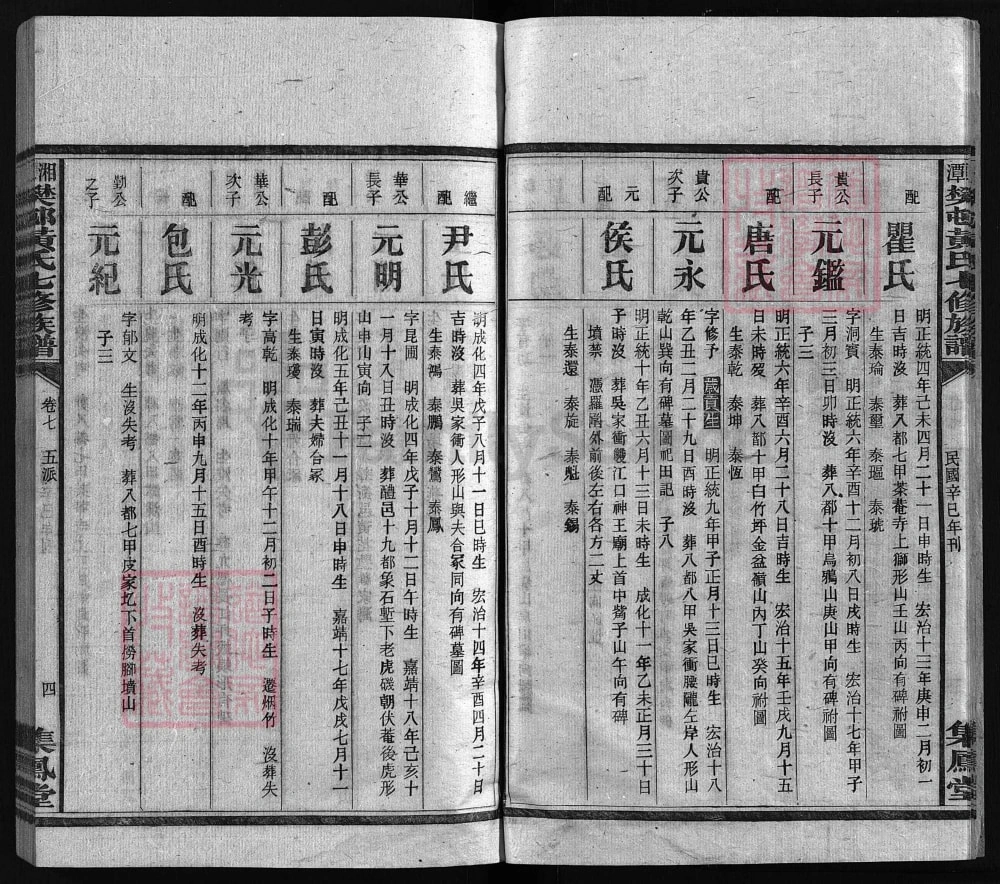 潭
黄氏七修族譜
民國辛巳年刊
集鳳堂
配
瞿氏
明正統四年己未四月二十一日申時生　宏治十三年庚申二月初一
日吉時沒　葬八都七甲茶菴寺上獅形山壬山丙向有碑祔圖
生泰瑜　泰璽　泰琩　泰琥
貴公
長子
元鑑
字洞賓　明正統六年辛酉十二月初八日戌時生　宏治十七年甲子
三月初三日卯時沒　葬八都十甲烏鴉山庚山甲向有碑祔圖
子三
配
唐氏
明正統六年辛酉六月二十八日吉時生　宏治十五年壬戌九月十五
日未時歿　葬八都十甲白竹坪金盆嶺山內丁山癸向祔圖
生泰乾　泰坤　泰恆
貴公
次子
元永
字修予　歲貢生　明正統九年甲子正月十三日巳時生　宏治十八
年乙丑二月二十九日酉時沒　葬八都八甲吳家衝腰隴左岸人形山
乾山巽向有碑墓圖祀田記　子八
元
配
侯氏
明正統十年乙丑六月十三日未時生　成化十一年乙未正月三十日
子時沒　葬吳家衝雙江口神王廟上首中嘴子山午向有碑
墳禁　憑羅圍外前後左右各方二丈
生泰還　泰旋　泰魁　泰錫
繼
配
尹氏
明成化四年戊子八月十一日巳時生　宏治十四年辛酉四月二十日
吉時沒　葬吳家衝人形山與夫合冢同向有碑墓圖
生泰鴻　泰鵬　泰鸞　泰鳳
華公
長子
元明
字昆圃　明成化四年戊子十月十二日午時生　嘉靖十八年己亥十
一月十八日丑時沒　葬醴邑十九都象石塹下老虎磯朝伏菴後虎形
山申山寅向　子二
配
彭氏
明成化五年己丑十一月十八日申時生　嘉靖十七年戊戌七月十一
日寅時沒　葬夫婦合冢
生泰璦　泰瑞
華公
次子
元光
字高乾　明成化十年甲午十二月初二日子時生　遷烟竹　沒葬失
考
配
包氏
明成化十二年丙申九月十五日酉時生　沒葬失考
勤公
之子
元紀
字郁文　生沒失考　葬八都七甲皮家圫下首傍腳墳山
子三
湘
黄氏七修族譜
卷七
五派
四
集鳳堂